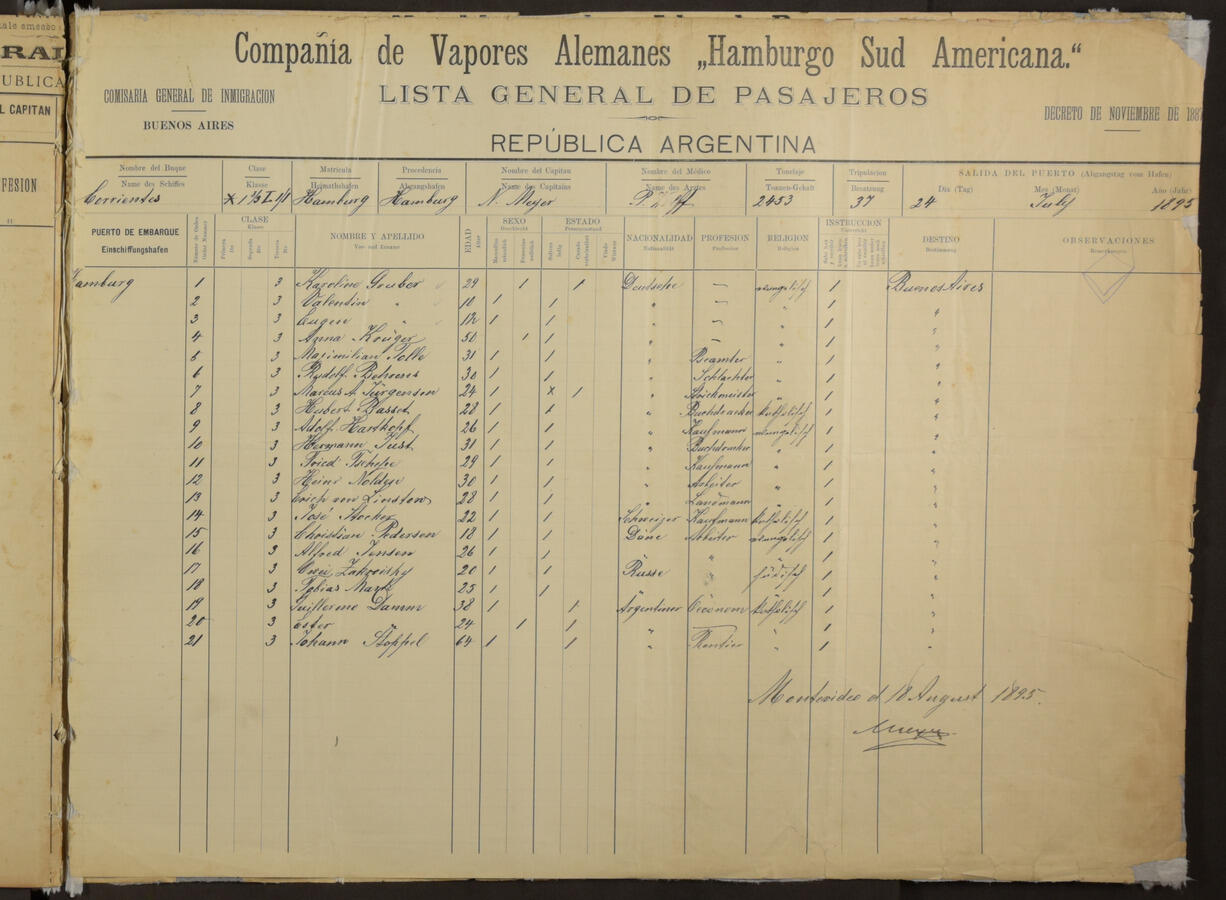 RAL
UBLICA
L CAPITAN
FESION
Compañía de Vapores Alemanes „Hamburgo Sud Americana.“
COMISARIA GENERAL DE INMIGRACION
BUENOS AIRES
LISTA GENERAL DE PASAJEROS
REPÚBLICA ARGENTINA
DECRETO DE NOVIEMBRE DE 1887
Nombre del Buque Clase Matricula Procedencia Nombre del Capitan Nombre del Médico Tonelaje Tripulacion SALIDA DEL PUERTO (Abgangstag vom Hafen)
Name des Schiffes Klasse Heimathshafen Abgangshafen Name des Capitains Name des Arztes Tonnen-Gehalt Besatzung Dia (Tag) Mes (Monat) Año (Jahr)
Corrientes Hamburg Hamburg N. Meyer 2453 37 24 July 1895
PUERTO DE EMBARQUE Einschiffungshafen CLASE Klasse NOMBRE Y APELLIDO EDAD SEXO ESTADO NACIONALIDAD PROFESION RELIGION INSTRUCCION DESTINO OBSERVACIONES
Hamburg 1 3 Karoline Gruber 29 1 1 Deutsche — evangelisch 1 Buenos Aires
2 3 Valentin " 10 1 1 " — " 1 "
3 3 Eugen " 1 1 " — " 1 "
4 3 Anna Krüger 50 1 1 " — " 1 "
5 3 Maximilian Tolle 31 1 1 " Beamter " 1 "
6 3 Rudolf Behrens 30 1 1 " Schlachter " 1 "
7 3 Marcus A. Jürgensen 24 1 x 1 " " 1 "
8 3 Hubert 28 1 1 " Buchdrucker katholisch 1 "
9 3 Adolf Harthopf 26 1 1 " Kaufmann evangelisch 1 "
10 3 Hermann Just 31 1 1 " Buchdrucker " 1 "
11 3 Fried 29 1 1 " Kaufmann " 1 "
12 3 Heinr Nolden 30 1 1 " Arbeiter " 1 "
13 3 Erich von 28 1 1 " Landmann " 1 "
14 3 José Stocker 22 1 1 Schweizer Kaufmann katholisch 1 "
15 3 Christian Pedersen 18 1 1 Däne Arbeiter evangelisch 1 "
16 3 Alfred Jensen 26 1 1 " " " 1 "
17 3 20 1 1 Russe " jüdisch 1 "
18 3 Tobias 25 1 1 " " " 1 "
19 3 Guillermo Damm 38 1 1 Argentiner Öconom katholisch 1 "
20 3 Ester " 24 1 1 " " 1 "
21 3 Johann Stöppel 64 1 1 " Rentier " 1 "
Montevideo d 18 August 1895.
Meyer